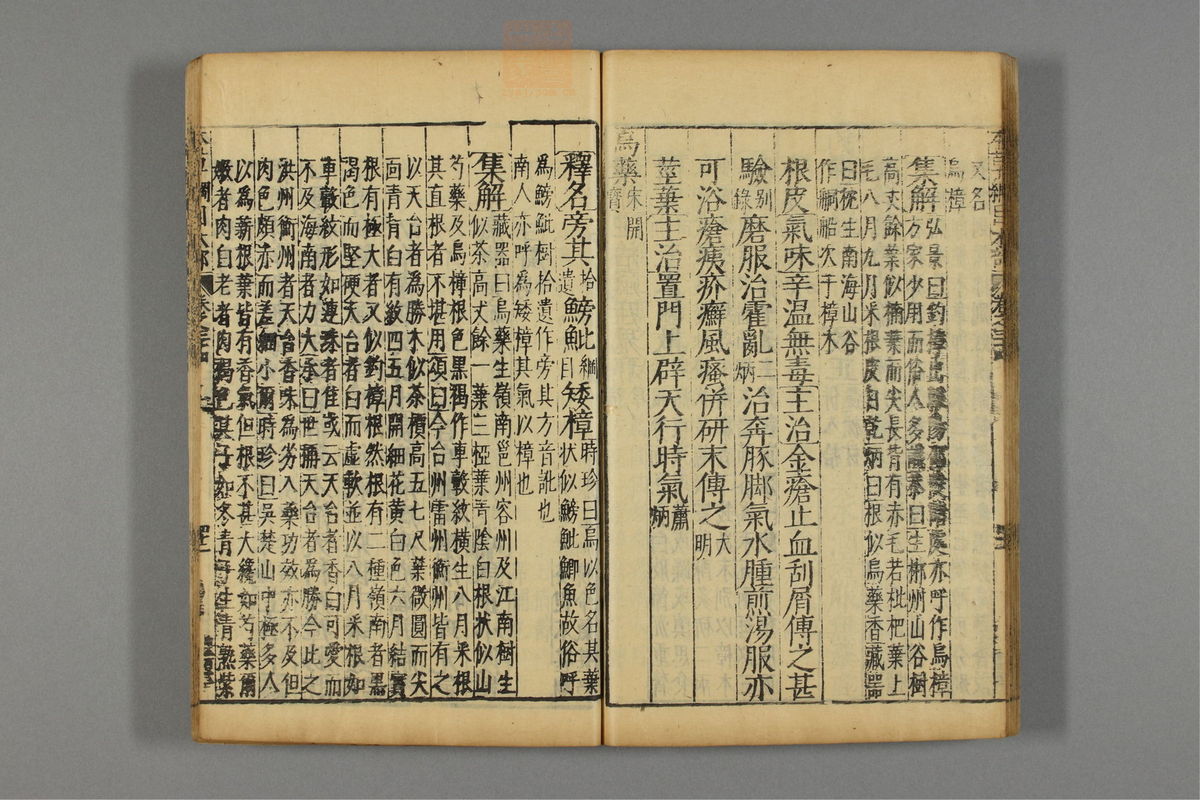 又名
烏樟
集解弘景曰釣樟出
方家少用而俗人多識
亦呼作烏樟
恭曰生郴州山谷樹
高丈餘葉似楠葉而尖長背有赤毛若枇杷葉上
毛八月九月采根皮日乾炳曰根似烏藥香藏器
曰生南海山谷
作舸船次于樟木
根皮氣味辛温無毒主治金瘡止血刮屑傅之甚
驗別錄磨服治霍亂炳治奔豚脚氣水腫煎湯服亦
可浴瘡痍疥癬風瘙併研末傅之大明
莖葉主治置門上辟天行時氣蕭炳
烏藥宋開寶
釋名旁其拾遺鰟魮綱目矮樟時珍曰烏以色名其葉
狀似鰟魮鯽魚故俗呼
為鰟魮樹拾遺作旁其方音訛也
南人亦呼為矮樟其氣以樟也
集解藏器曰烏藥生嶺南邕州容州及江南樹生
似茶高丈餘一葉三椏葉青陰白根狀似山
芍藥及烏樟根色黑褐作車轂紋橫生八月采根
其直根者不堪用頌曰今台州雷州衡州皆有之
以天台者為勝木似茶櫃高五七尺葉微圓而尖
面青背白有紋四五月開細花黃白色六月結實
根有極大者又似釣樟根然根有二種嶺南者黑
褐色而堅硬天台者白而虛軟並以八月采根如
車轂紋形如連珠者佳或云天台者香白可愛而
不及海南者力大承曰世稱天台者為勝今此之
洪州衡州者天台香味為劣入藥功效亦不及但
肉色頗赤而差細小爾時珍曰吳楚山中極多人
以為薪根葉皆有香氣但根不甚大纔如芍藥爾
嫩者肉白老者肉褐色其子如冬青子生青熟紫